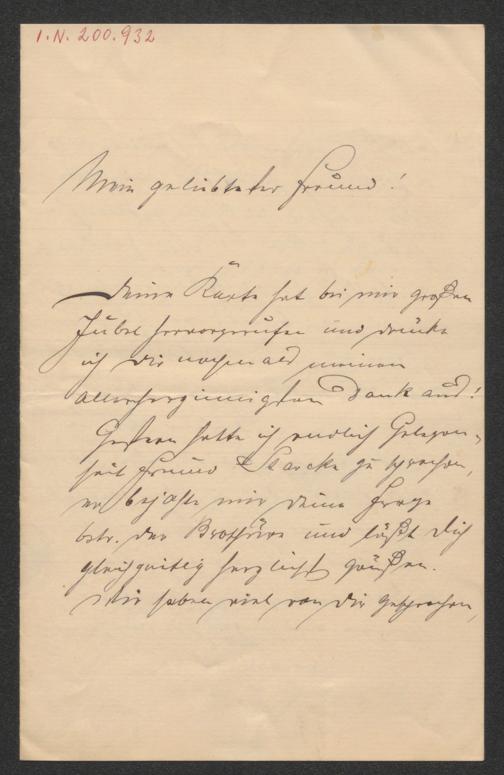 I.N. 200.932
Mein geliebtester Freund!
Deine Karte hat bei mir großen
Jubel hervorgerufen und drücke
ich Dir nochmals meinen
allerherzinnigsten Dank aus!
Gestern hatte ich endlich Gelegen-
heit Freund Starcke zu sprechen,
er bejahte mir Deine Frage
betr. der Broschüre und läßt Dich
gleichzeitig herzlichst grüßen.
Wir haben viel von Dir gesprochen,